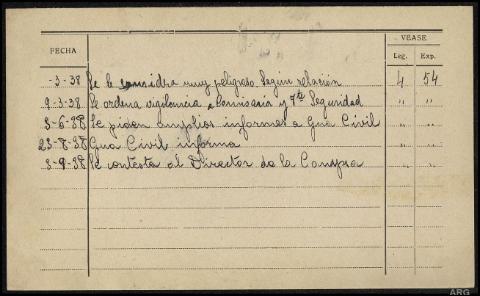 VEASE
FECHA Leg. Exp.
-3-38 Se le considra muy peligroso segun relación 4 54
9-3-38 Se ordena vigilencia a Comisaria y 7te Seguridad " "
3-6-38 Se piden amplios informes a Gua Civil " "
23-8-38 Gua Civil informa " "
3-9-38 Se contesta al Director de la " "
ARG